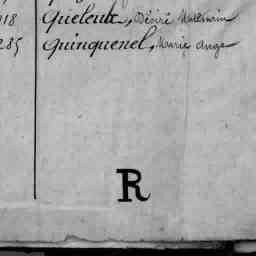 18 Queleut, Désiré Mathurin
285 Quinquenel, Marie Ange
R